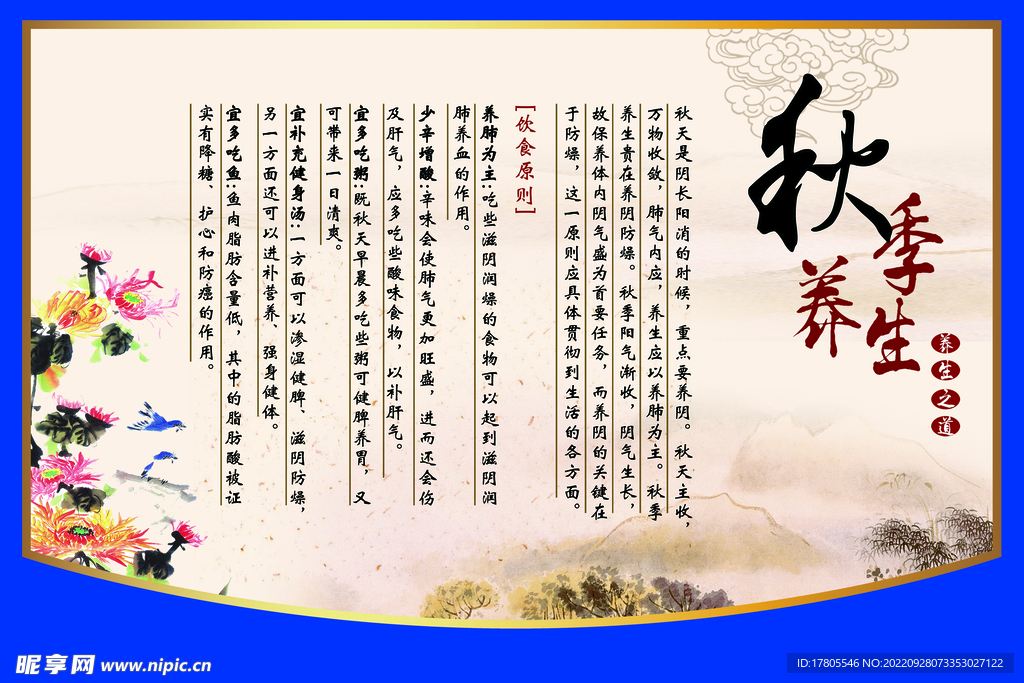 秋季养生
养生之道
秋天是阴长阳消的时候，重点要养阴。秋天主收，
万物收敛，肺气内应，养生应以养肺为主。秋季
养生贵在养阴防燥。秋季阳气渐收，阴气生长，
故保养体内阴气盛为首要任务，而养阴的关键在
于防燥，这一原则应具体贯彻到生活的各方面。
[饮食原则]
养肺为主:吃些滋阴润燥的食物可以起到滋阴润
肺养血的作用。
少辛增酸:辛味会使肺气更加旺盛，进而还会伤
及肝气，应多吃些酸味食物，以补肝气。
宜多吃粥:既秋天早晨多吃些粥可健脾养胃，又
可带来一日清爽。
宜补充健身汤:一方面可以渗湿健脾、滋阴防燥，
另一方面还可以进补营养、强身健体。
宜多吃鱼:鱼肉脂肪含量低，其中的脂肪酸被证
实有降糖、护心和防癌的作用。
昵享网 www.nipic.cn
ID:17805546 NO:20220928073353027122